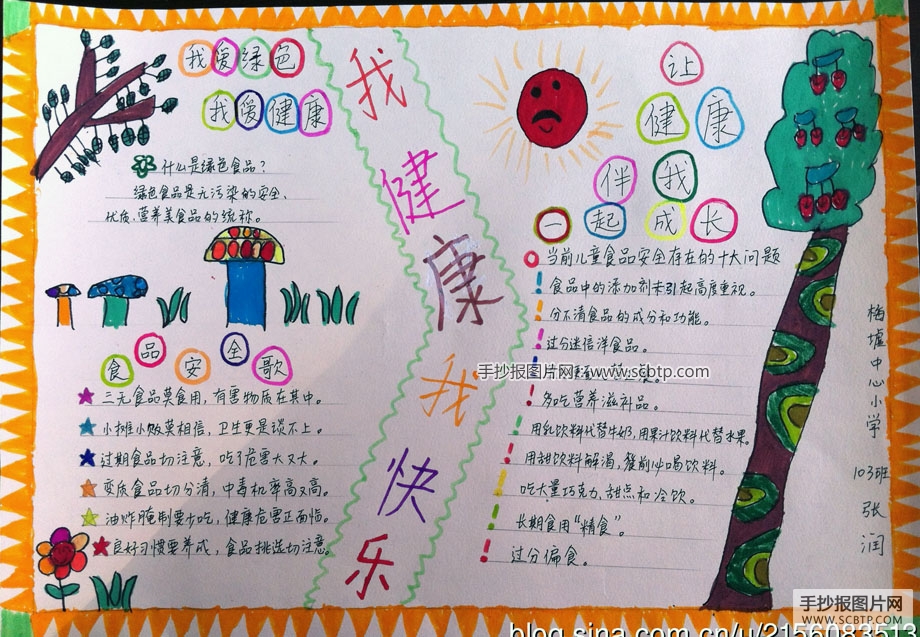 我爱绿色
我爱健康
什么是绿色食品？
绿色食品是无污染的安全、
优质、营养美食品的统称。
食品安全歌
三无食品莫食用，有害物质在其中。
小摊小贩莫相信，卫生更是谈不上。
过期食品切注意，吃了危害大又大。
变质食品切分清，中毒机率高又高。
油炸腌制要少吃，健康危害正面临。
良好习惯要养成，食品挑选切注意。
我健康我快乐
让
健康
伴我
一起成长
当前儿童食品安全存在的十大问题
食品中的添加剂未引起高度重视。
分不清食品的成分和功能。
过分迷信洋食品。
手抄报图片网：www.scbtp.com
多吃营养滋补品。
用乳饮料代替牛奶，用果汁饮料代替水果。
用甜饮料解渴，餐前冲喝饮料。
吃大量巧克力、甜点和冷饮。
长期食用“精食”。
过分偏食。
梅墟中心小学
103班
张润
手抄报图片网
WWW.SCBTP.COM
blog.sina.com.cn/u/2156083513